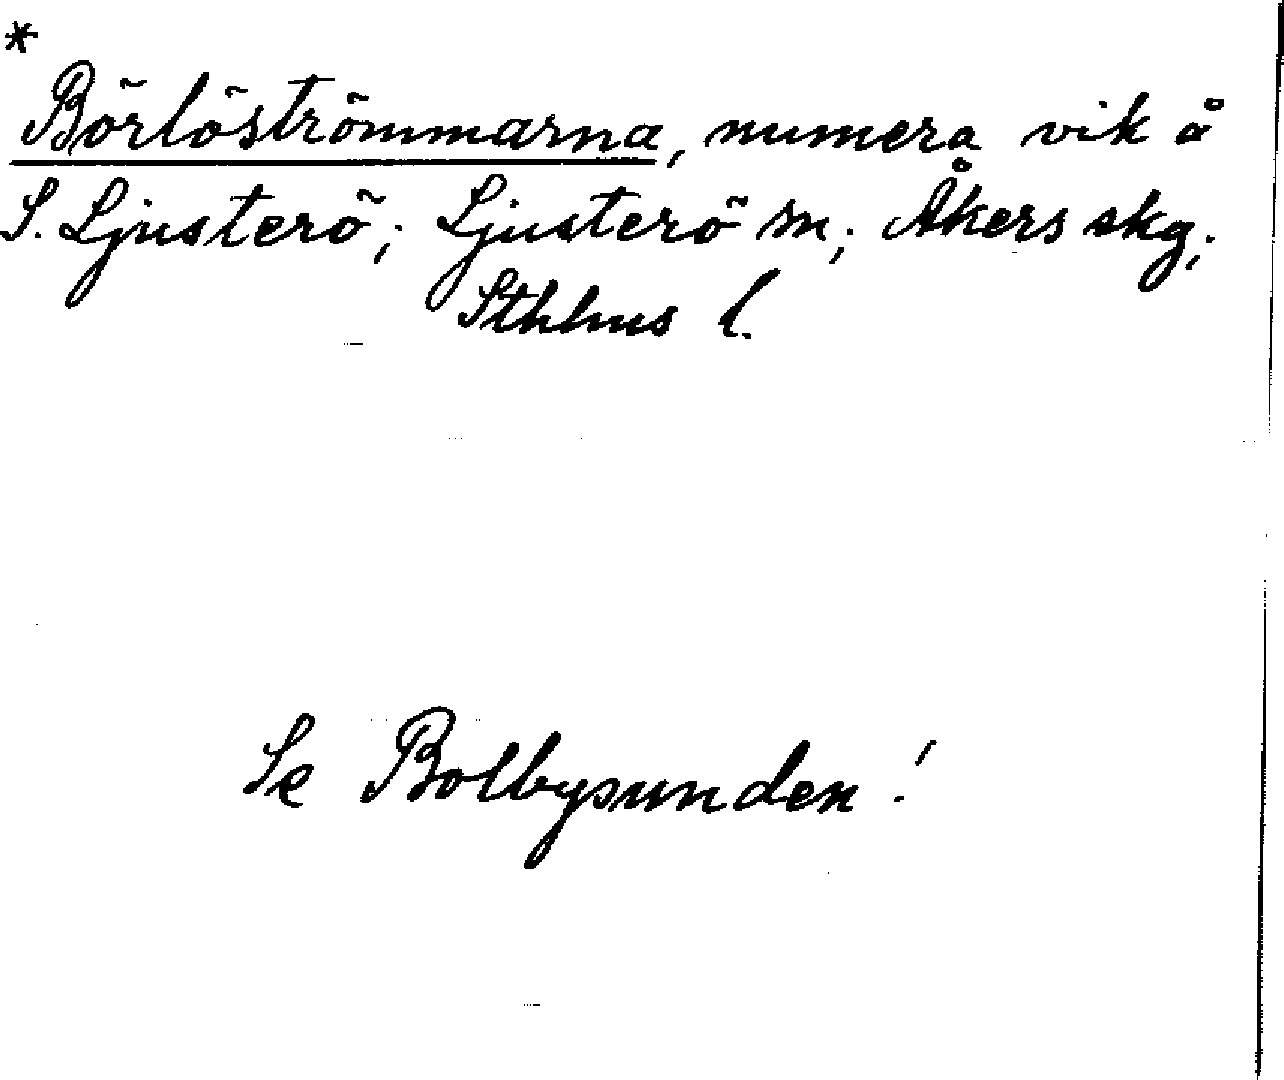 *
Börlöströmmarna, numera vik å
S. Ljusterö; Ljusterö sn; Åkers skg;
Sthlms l.
Se Bolbysunden!